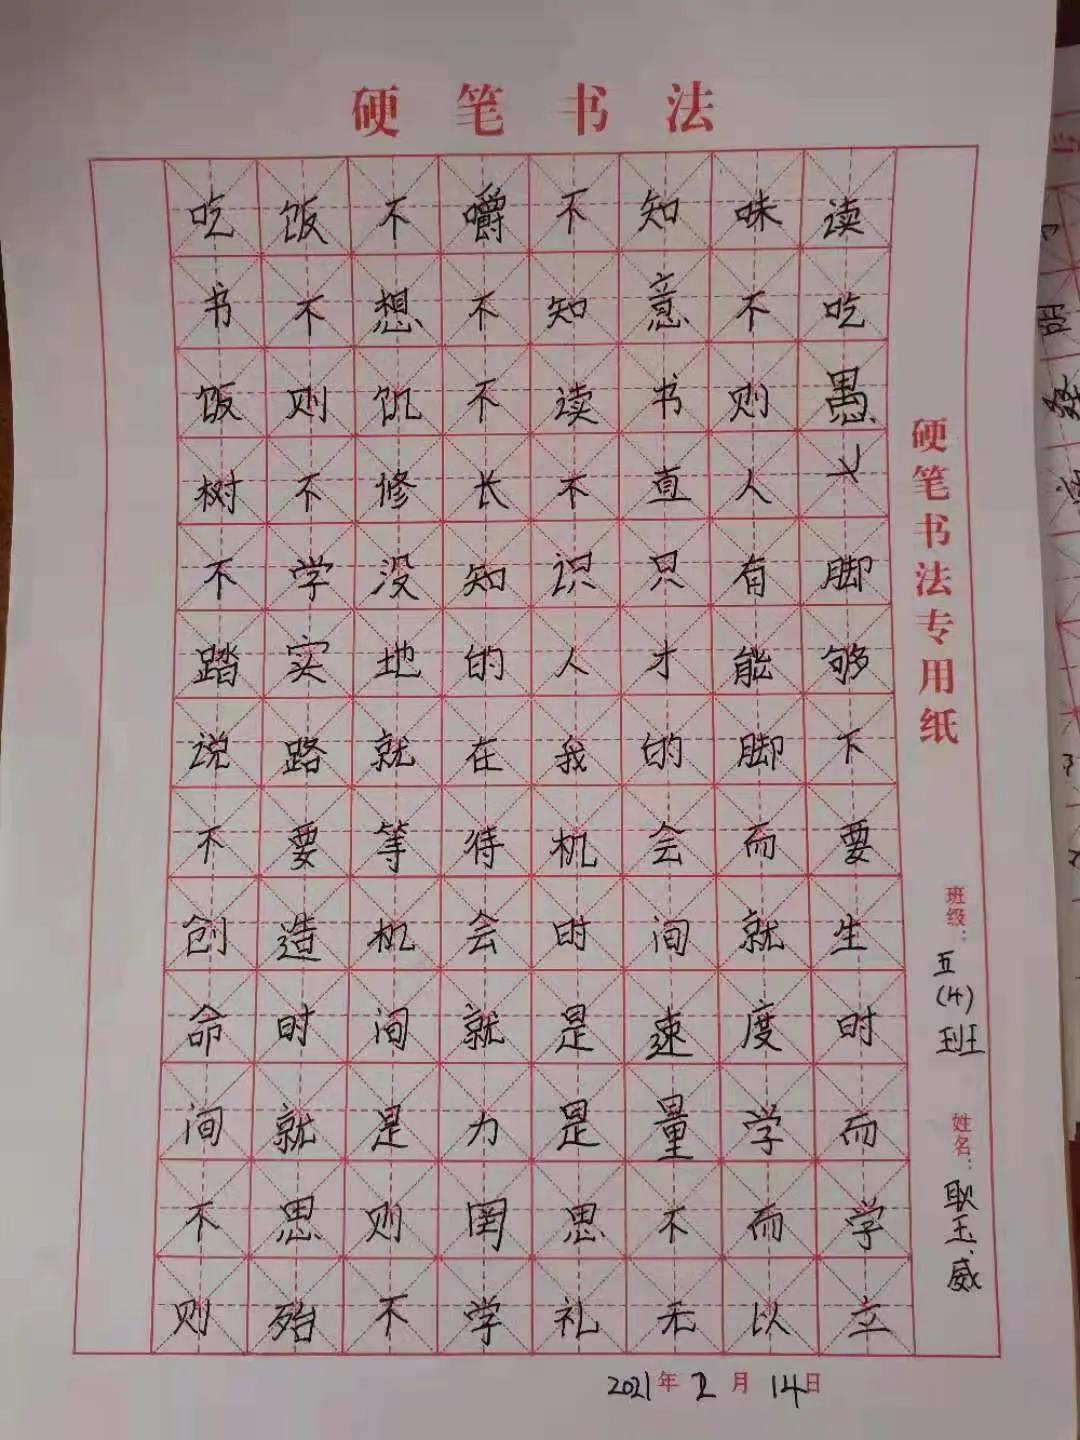 硬笔书法
吃饭不嚼不知味读
书不想不知意不吃
饭则饥不读书则愚
树不修长不直人
不学没知识只有脚
踏实地的人才能够
说路就在我的脚下
不要等待机会而要
创造机会时间就生
命时间就是速度时
间就是力是量学而
不思则罔思不而学
则殆不学礼无以立
硬笔书法专用纸
班级：五(4)班
姓名：耿玉威
2021年2月14日